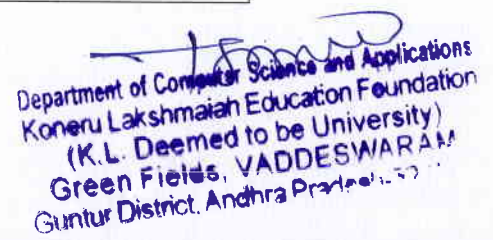 Department of Computer Science and Applications
Koneru Lakshmaiah Education Foundation
(K.L. Deemed to be University)
Green Fields, VADDESWARAM
Guntur District, Andhra Pradesh